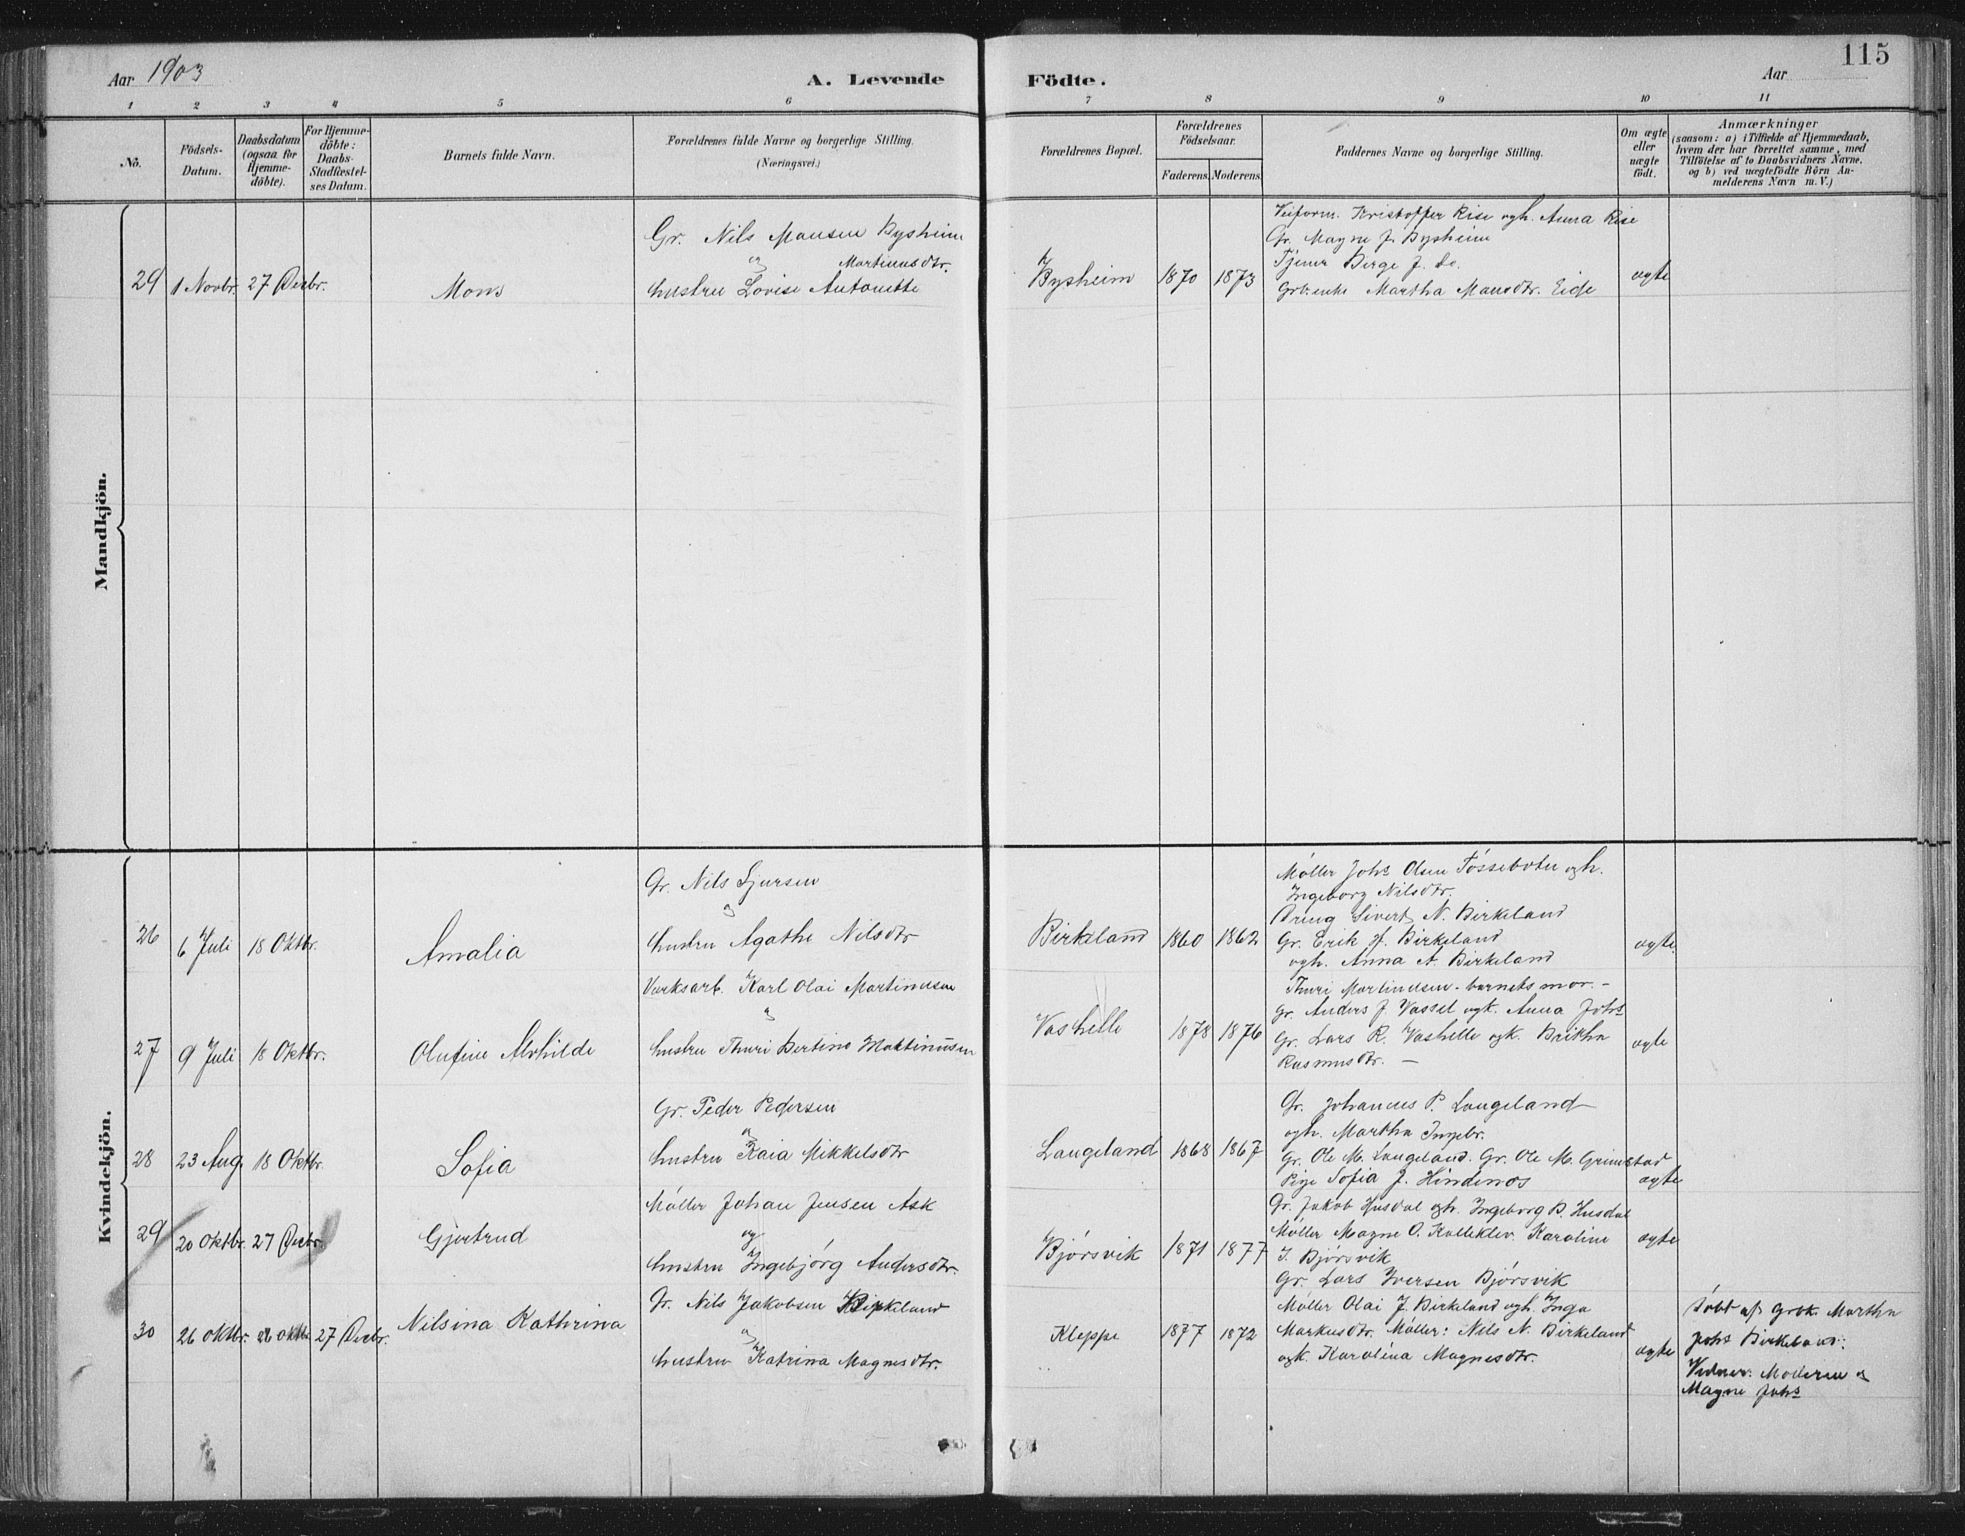 115
Aar 1903
A. Levende Födte.
Aar
1 2 3 4 5 6 7 8 9 10 11
No.
Födsels-Datum.
Daabsdatum (ogsaa for Hjemme-döbte).
For Hjemme-döbte: Daabs-Stadfæstel-ses Datum.
Barnets fulde Navn.
Forældrenes fulde Navne og borgerlige Stilling. (Næringsvei.)
Forældrenes Bopæl.
Forældrenes Födselsaar.
Faderens. Moderens.
Faddernes Navne og borgerlige Stilling.
Om ægte eller uægte födt.
Anmærkninger
(saasom: a) i Tilfælde af Hjemmedaab,
hvem der har forrettet samme, med
Tilföielse af to Daabsvidners Navne.
og b) ved uægtefödte Börn An-
melderens Navn m. V.)
Mandkjön.
29 1 Novbr. 27 Decbr. Mons
Gr. Nils Monsen Bysheim
og Martinusdtr.
hustru Lovise Antonette
Bysheim 1870 1873
Veiform. Kristoffer Rise ogh. Anna Rise
Gr. Magne J. Bysheim
Tjener Berge J. do.
Grb.enke Martha Monsdtr. Eide
ægte
Kvindekjön.
26 6 Juli 18 Oktbr. Amalia
Gr. Nils Sjursen
og
hustru Agathe Nilsdtr
Birkeland 1860 1862
Møller Johs Olsen Fossebotn ogh.
Ingeborg Nilsdtr.
Dreng Sivert N. Birkeland
Gr. Erik J. Birkeland
ogh. Anna A. Birkeland
ægte
27 9 Juli 18 Oktbr. Olufine Alvhilde
Værksarb. Karl Olai Martinusen
og
hustru Thuri Bertine Martinusen
Vashelle 1878 1876
Thuri Martinusen - barnets mor. -
Gr. Anders J. Vassel ogk. Anna Johs
Gr. Lars R. Vashelle ogk. Briktha
Rasmusdtr. -
ægte
28 23 Aug. 18 Oktbr. Sofia
Gr. Peder Pedersen
og
hustru Kaia Mikkelsdtr
Langeland 1868 1867
Gr. Johannes P. Langeland
ogh. Martha Ingebr.
Gr. Ole M. Langeland. Gr. Ole M. Grimstad
Pige Sofia J. Hindenes
ægte
29 20 Oktbr. 27 Decbr. Gjertrud
Møller Johan Jensen Ask
og
hustru Ingebjørg Andersdtr.
Bjørsvik 1871 1877
Gr. Jakob Husdal ogh. Ingeborg B. Husdal
Møller Magne O. Kalleklev. Karoline
I. Bjørsvik
Gr. Lars Iversen Bjørsvik
ægte
30 26 Oktbr. 26 Oktbr 27 Decbr. Nilsina Kathrina
Gr. Nils Jakobsen Birkeland
og
hustru Katrina Magnesdtr.
Kleppe 1877 1872
Møller Olai J. Birkeland ogh. Inga
Markusdtr. Møller: Nils N. Birkeland
ogk. Karolina Magnesdtr.
ægte
Døbt af Grbk. Martha
Johs Birkeland:
Vidner: Moderen og
Magne Johs